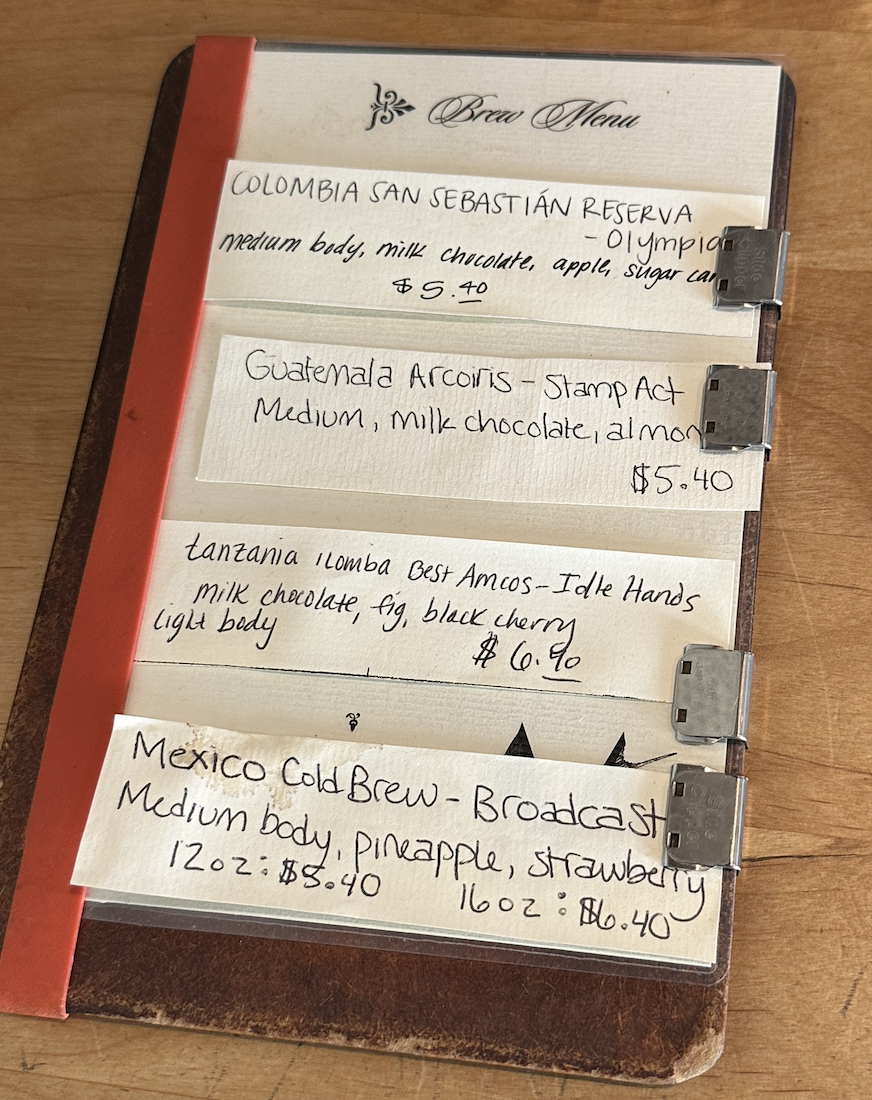 Brew Menu
COLOMBIA SAN SEBASTIÁN RESERVA
- Olympia
medium body, milk chocolate, apple, sugar
$5.40
Guatemala Arcoiris - Stamp Act
Medium, milk chocolate,
$5.40
tanzania ilomba Best Amcos - Idle Hands
milk chocolate, fig, black cherry
light body
$6.90
Mexico Cold Brew - Broadcast
Medium body, pineapple, strawberry
12oz: $5.40 16oz: $6.40